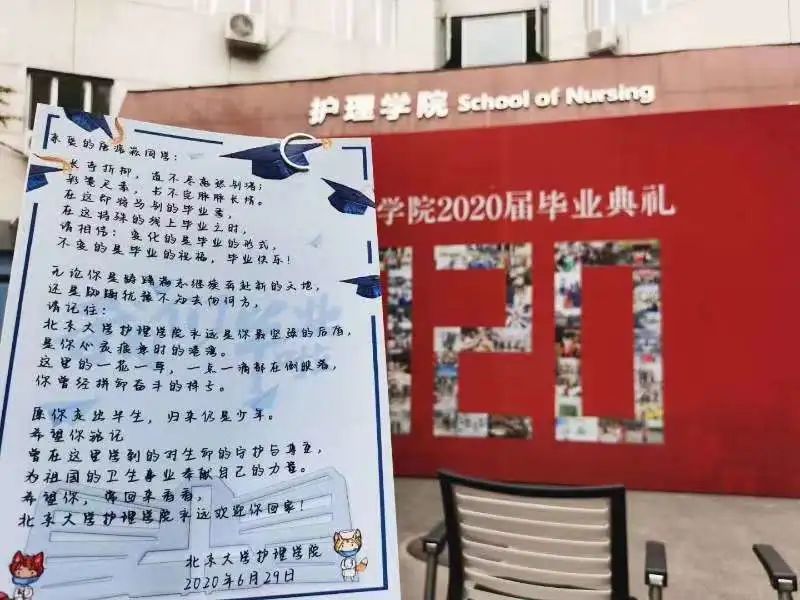 护理学院 School of Nursing
学院2020届毕业典礼
亲爱的
同学:
长亭折柳,道不尽离愁别绪;
彩笺尺素,书不完脉脉长情。
在这即将告别的毕业季,
在这特殊的线上毕业之时,
请相信:变化的是毕业的形式,
不变的是毕业的祝福,毕业快乐!
无论你是踌躇满志继续奔赴新的天地,
还是踟蹰犹豫不知去向何方,
请记住:
北京大学护理学院永远是你最坚强的后盾,
是你心灰疲惫时的港湾。
这里的一花一草,一点一滴都在倒映着,
你曾经拼命奋斗的样子。
愿你走出半生,归来仍是少年。
希望你铭记
曾在这里学到的对生命的守护与尊重,
为祖国的卫生事业奉献自己的力量。
希望你,常回来看看,
北京大学护理学院永远欢迎你回家!
北京大学护理学院
2020年6月29日